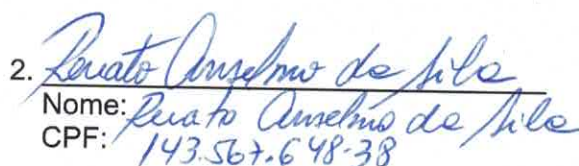 2. Renato Anselmo da Silva
Nome: Renato Anselmo da Silva
CPF: 143.567.648-38